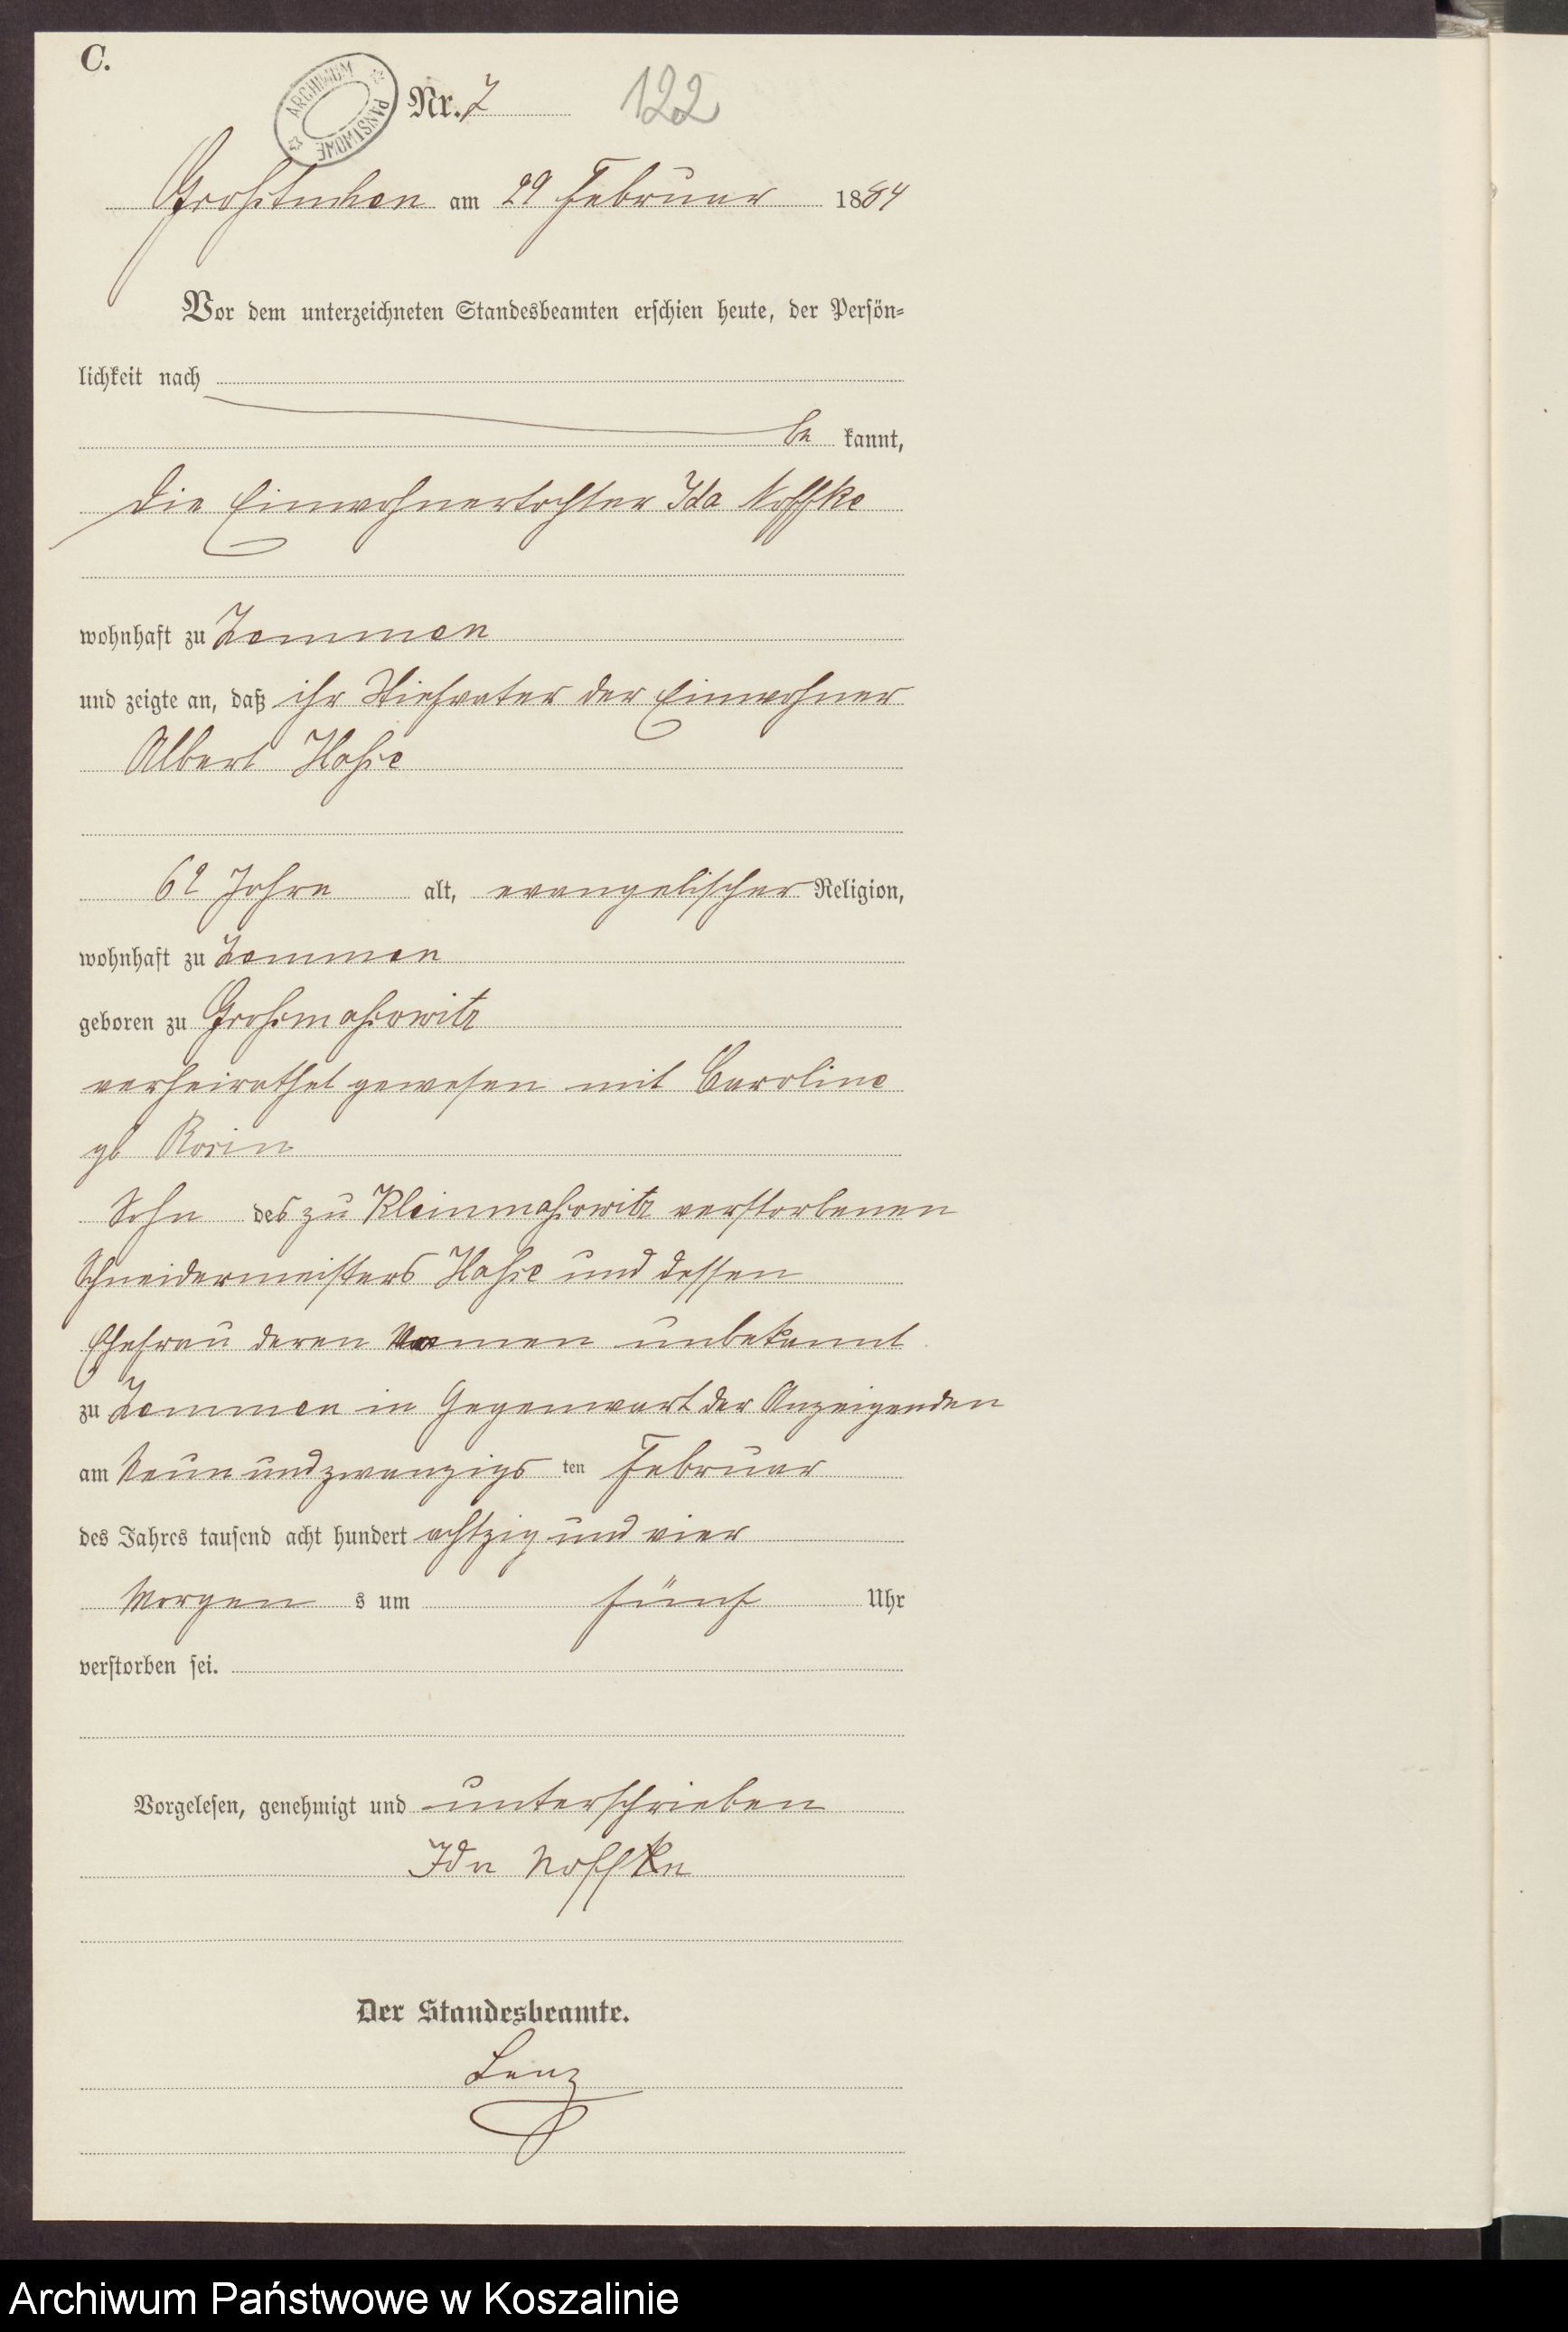 C.
ARCHIWUM PAŃSTWOWE
Nr. 7 122
Großtuchen am 29 Februar 1884
Vor dem unterzeichneten Standesbeamten erschien heute, der Persön=
lichkeit nach
be kannt,
die Einwohnertochter Ida Noffke
wohnhaft zu Zemmen
und zeigte an, daß ihr Stiefvater der Einwohner
Albert Hasse
62 Jahre alt, evangelischer Religion,
wohnhaft zu Zemmen
geboren zu Großmassowitz
verheirathet gewesen mit Caroline
gb Rosin
Sohn des zu Kleinmassowitz verstorbenen
Schneidermeisters Hasse und dessen
Ehefrau deren Namen unbekannt
zu Zemmen in Gegenwart der Anzeigenden
am Neun und zwanzigs ten Februar
des Jahres tausend acht hundert achtzig und vier
Morgen s um fünf Uhr
verstorben sei.
Vorgelesen, genehmigt und unterschrieben
Ida Noffke
Der Standesbeamte.
Lenz
Archiwum Państwowe w Koszalinie